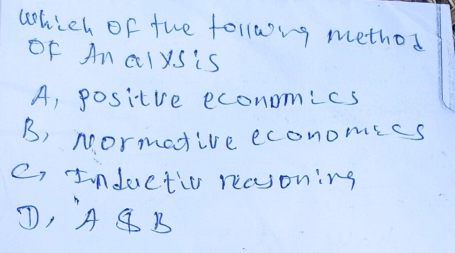 which of the follwing method
OF Analysis
A, positve economics
B, Normative economics
C, Inductiv reasoning
D, A & B